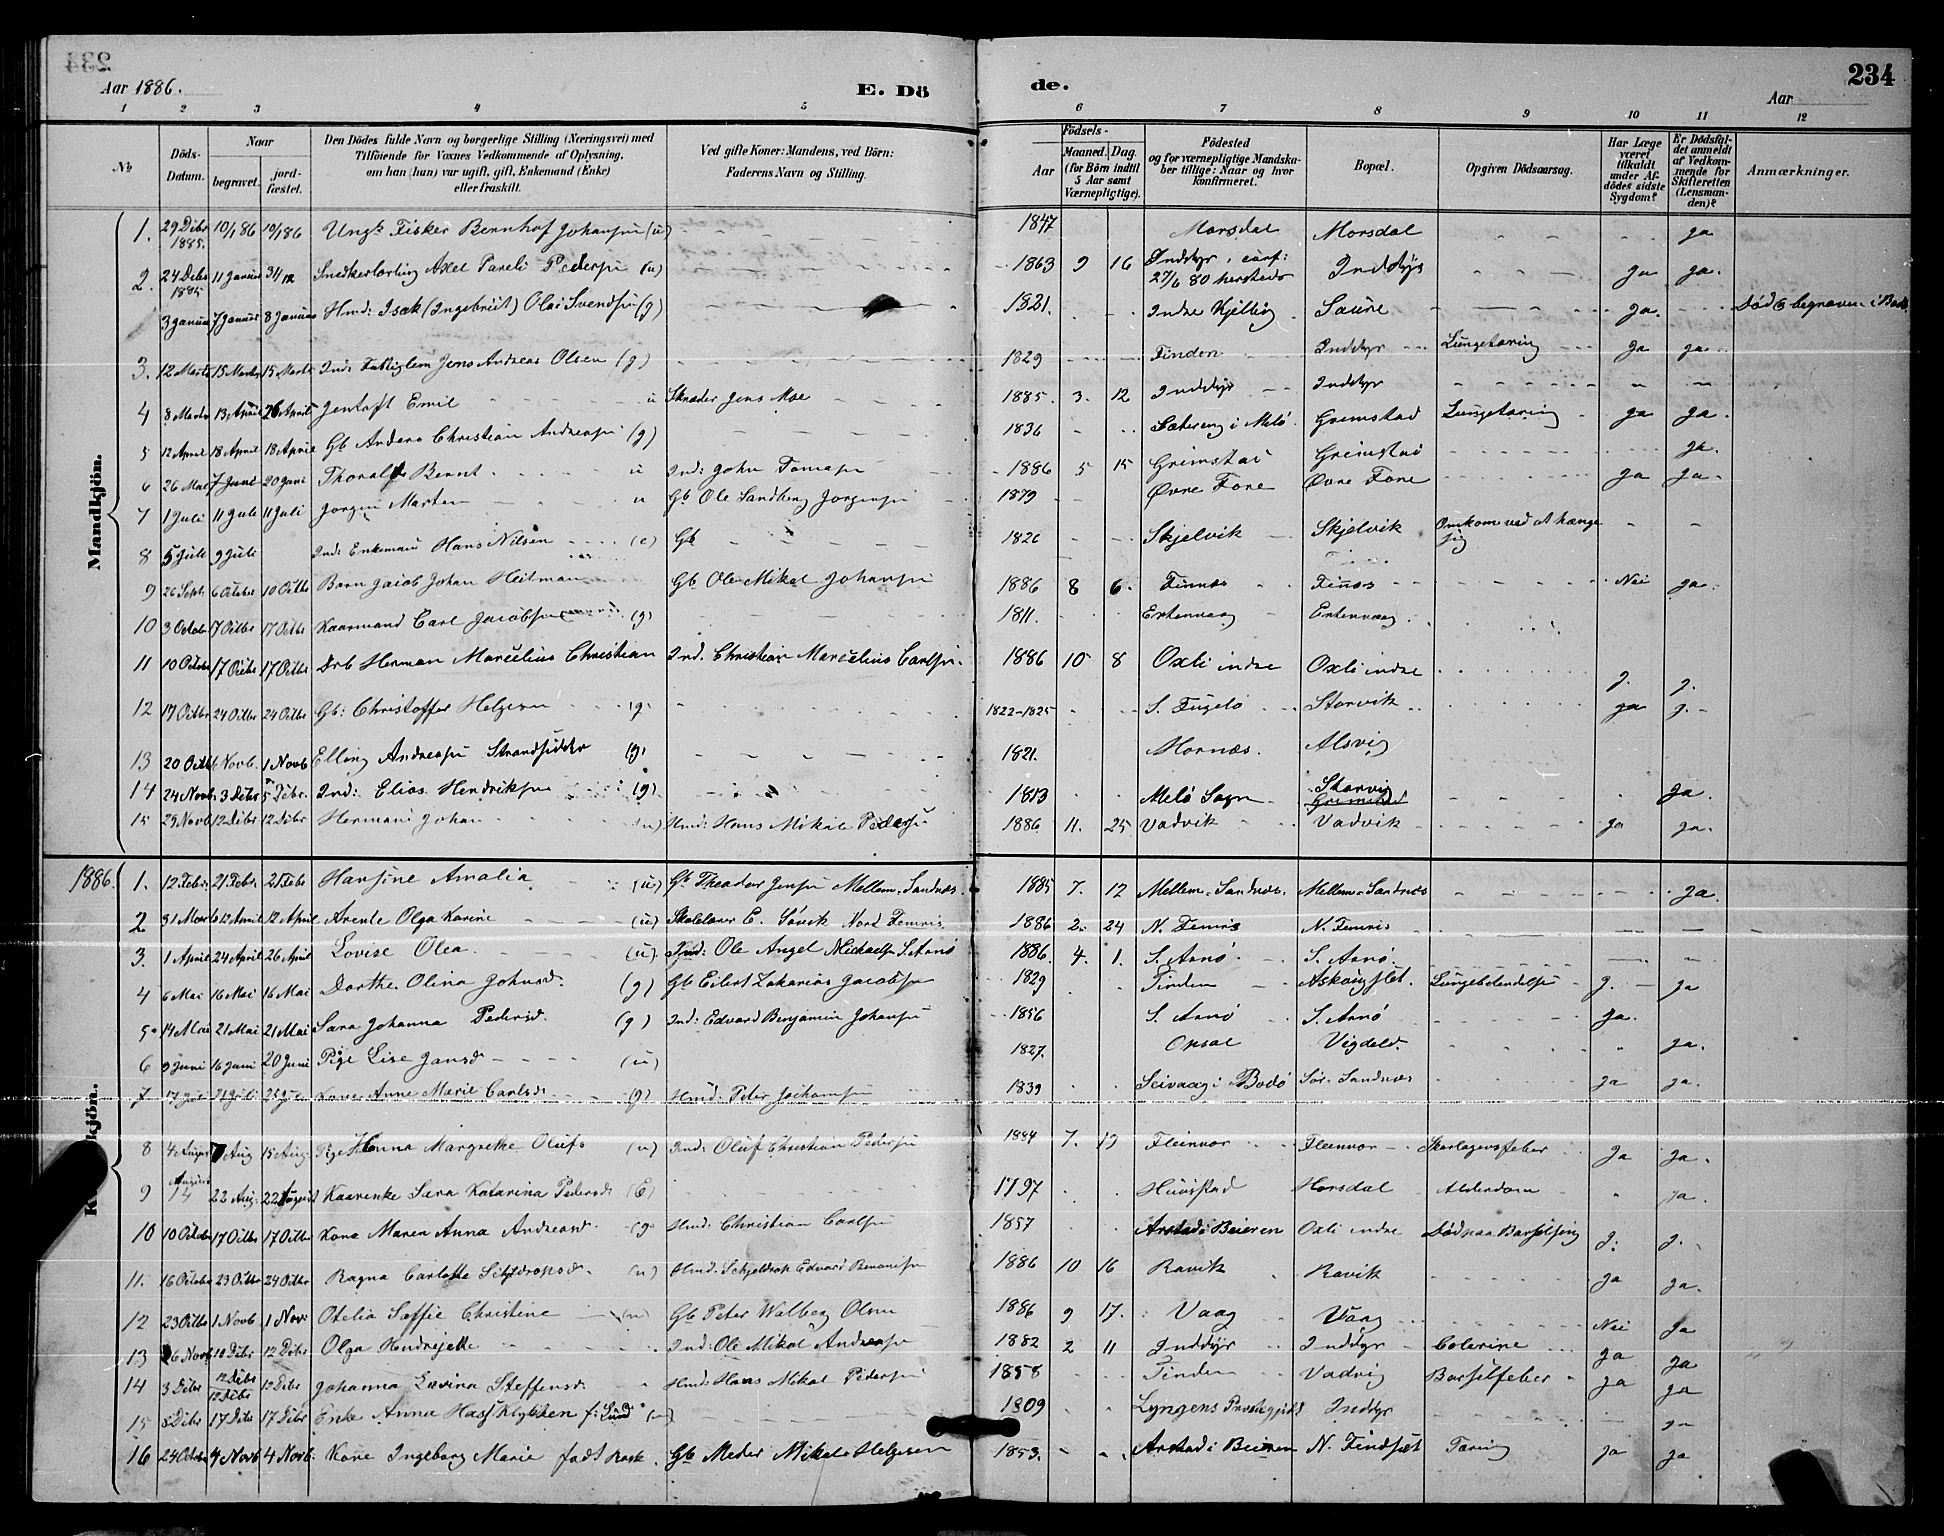 234
Aar 1886.
E. Dö
de.
Aar
1 2 3 4 5 6 7 8 9 10 11 12
No
Döds-Datum.
Naar
begravet.
jord-fæstet.
Den Dödes fulde Navn og borgerlige Stilling (Næringsvei) med Tilföiende for Voxnes Vedkommende af Oplysning, om han (hun) var ugift, gift, Enkemand (Enke) eller fraskilt.
Ved gifte Koner: Mandens, ved Börn: Faderens Navn og Stilling.
Födsels-
Aar
Maaned. Dag.
(for Börn indtil 5 Aar samt Værnepligtige).
Födested og for værnepligtige Mandskaber tillige: Naar og hvor konfirmeret.
Bopæl.
Opgiven Dödsaarsag.
Har Læge været tilkaldt under Afdödes sidste Sygdom?
Er Dödsfaldet anmeldt af Vedkommende for Skifteretten (Lensmanden)?
Anmærkninger.
Mandkjön.
1. 29 Dcbr 1885. 10/1 86 10/1 86 Ungk Fisker Bernhof Johansen (u) 1847 Morsdal Morsdal ja
2. 24 Dcbr 1885 11 Januar 31/12 Snedkerlærling Axel Pareli Pedersen (u) 1863 9 16 Inddyr, conf: 27/6 80 hersteds Inddyr ja ja.
3 Januar 7 Januar 8 Januar Hmd: Isak (Ingebrigt) Olai Svendsen (g) 1821. Indre Kjelling Saure ja. Död & begraven i Bodö
3. 12 Marts 15 Marts 15 Marts Ind: Fattiglem Jens Andreas Olsen (g) 1829 Finden Inddyr Lungetæring ja ja
4 8 Marts 13 April 26 April Jentoft Emil u Skræder Jens Moe 1885. 3. 12 Inddyr Inddyr
5 12 April 18 April 18 April Gb Anders Christian Andreasen (g) 1836 Sætereng i Melö Grimstad Lungetæring ja ja.
6 26 Mai 7 Juni 20 Juni Thoralf Bernt u Ind: John Tomasen 1886 5 15 Grimstad Grimstad ja.
7 1 Juli 11 Juli 11 Juli Jorgen Morten u Gb Ole Sandberg Jorgensen 1879 Øvre Fore Øvre Fore ja ja
8 5 Juli 9 Juli Ind: Enkemand Hans Nilsen (e) Gb 1826 Skjelvik Skjelvik Omkom ved at hænge sig
9 26 Sept. 6 October 10 Octbr Barn Jacob Johan Heitman Gb Ole Mikal Johansen 1886 8 6. Finnæs Finæs Nei ja.
10 3 October 17 Octbr 17 Octbr Kaarmand Carl Jacobsen (g) 1811. Ertenvaag Ertenvaag
11 10 October 17 Octbr 17 Octbr Drb Herman Marcelius Christian Ind. Christian Marcelius Carlsen. 1886 10 8 Oxli indre Oxli indre j. j.
12 17 Octbr 24 Octbr 24 Octbr Gb: Christoffer Helgesen (g) 1822-1825 S. Fugelö Storvik ja j.
13 20 Octb 1 Novb. 1 Novb Elling Andreasen Strandsidder (g) 1821. Hornæs. Alsvig
14 24 Novb. 3 Dcbr 5 Dcbr. Ind: Elias Hendriksen (g) 1813 Melö Sogn Storvig Grimstad ja.
15 25 Novb 12 Dcbr 12 Dcbr Hermann Johan (u) Hmd: Hans Mikal Pedersen 1886 11. 25 Vadvik Vadvik ja ja.
1886. 1. 12 Febr. 21 Febr. 21 Febr Hansine Amalia (u) Gb Theodor Jensen Mellem. Sandnæs. 1885 7. 12 Mellem. Sandnæs. Mellem. Sandnæs ja.
2 31 Marts 12 April 12 April Arente Olga Karine (u) Skolelærer E. Sövik Nord Femris 1886 2. 24 N. Femris N. Femris
3. 1 April 24 April 26 April Lovise Olea (u) Ind: Ole Angel Michaelsen S. Arnö 1886. 4. 1. S. Arnö. S. Arnö.
4 6 Mai 16 Mai 16 Mai Dorthe Olina Johnsd. (g) Gb Eilert Zakarias Jacobsen 1829 Finden Lungebetændelse j. ja
5 14 Mai 21 Mai 21 Mai Sara Johanna Pedersd. (g) Ind: Edvard Benjamin Johansen 1856 S. Arnö S. Arnö ja.
6 9 Juni 16 Juni 20 Juni Pige Lise Jansd (u) 1827. Opsal Vigdeld. ja.
7 17 Juli 21 Juli 25 Juli Kone Anne Marie Carlsd. (g) Hmd: Peter Jochamsen 1839 Seivaag i Bodö Sör Sandnæs ja ja.
8 4 August 7 Aug 15 Aug. Pige Hanna Margrethe Olufs (u) Ind: Oluf Christian Pedersen 1884 7. 19 Fleinvær Fleinvær Skarlagensfeber ja ja.
9 August 14 22 Aug. 22 August Kaarenke Sara Katarina Pedersd (E) 1797 Horsdal Alderdom ja.
10 10 October 17 Octbr 17 Octbr Kone Maren Anna Andreasd. (g) Hmd: Christian Carlsen 1857 Arstad i Beieren Oxli indre Död paa Barselseng j. j.
11. 16 October 23 Octbr 24 Octbr Ragna Carlotte (u) Hmd. Schjeldrop Edvard 1886 10 16 Ravik Ravik ja ja.
12 23 Octbr 1 Novb 1 Nov: Otelia Soffie Christine (u) Gb Peter Walberg Olsen 1886 9 17. Vaag Vaag Nei ja
13 26 Novb 10 Dcbr 12 Dcbr Olga Hendrijette Ind: Ole Mikal Andreasen 1882 2 11 Inddyr Inddyr Colerine ja ja
14 3 Dcbr 12 Dcbr 12 Dcbr Johanna Lovina Steffensd Hmd: Hans Mikal Pedersen 1858 Finden Vadvig Barselfeber ja ja
15 8 Dcbr 17 Dcbr 17 Dcbr Enke Anna f: Lund 1809 Lyngens Inddyr ja
16 24 Octbr 4 Novb 4 Novb. Kone Ingeborg Marie födt Rask. Gb Meder Mikal Helgesen 1853. Arstad i Beieren N. Findsæt Tæring ja ja